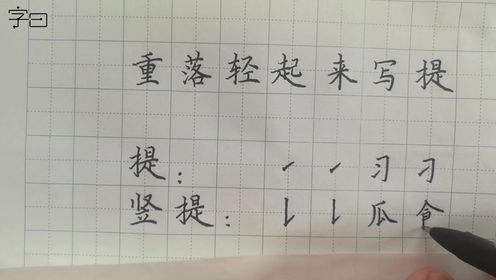 字曰
重落轻起来写提
提： ㇀ ㇀ 习 刁
竖提： 瓜